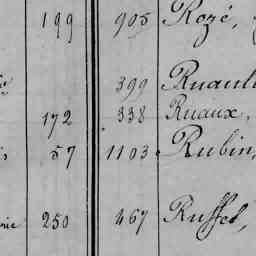 199 905 Rozé,
399 Ruault
172 338 Ruaux,
57 1103 Rubin,
250 467 Ruffel,